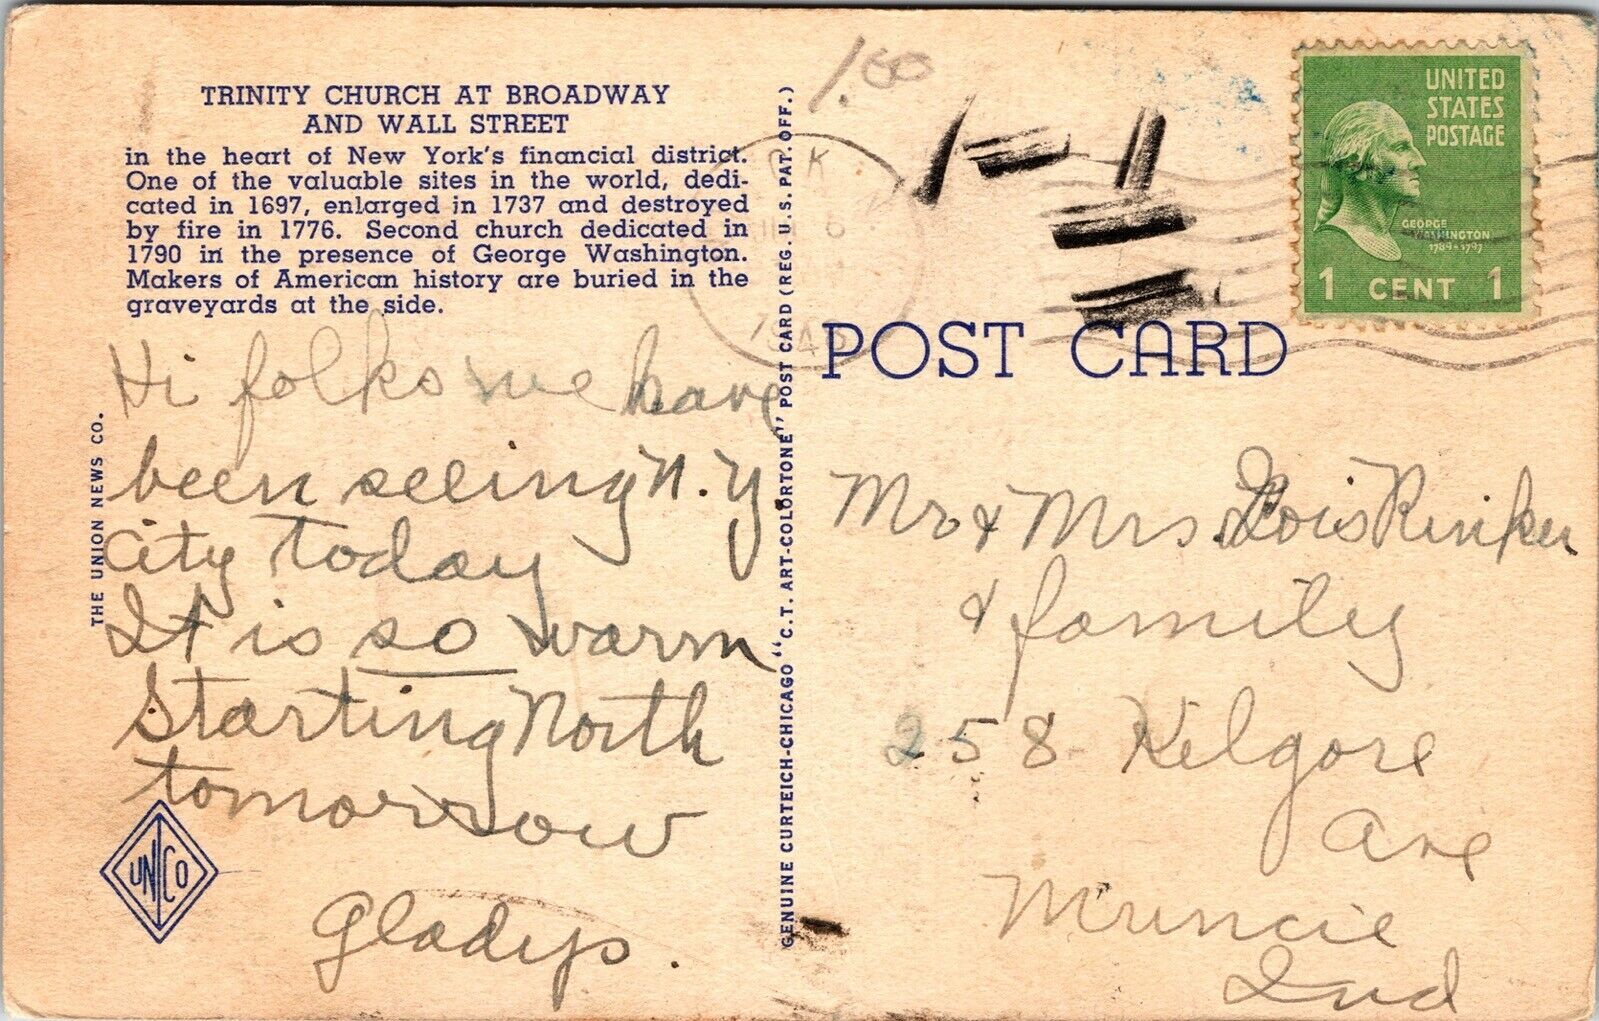 TRINITY CHURCH AT BROADWAY
AND WALL STREET
in the heart of New York's financial district.
One of the valuable sites in the world, dedi-
cated in 1697, enlarged in 1737 and destroyed
by fire in 1776. Second church dedicated in
1790 in the presence of George Washington.
Makers of American history are buried in the
graveyards at the side.
THE UNION NEWS CO.
Hi folks we have
been seeing N.Y.
City today
It is so warm
Starting North
tomorrow
Gladys.
UNCO
GENUINE CURTEICH-CHICAGO "C.T. ART-COLORTONE" POST CARD (REG. U.S. PAT. OFF.)
1.00
UNITED
STATES
POSTAGE
GEORGE
WASHINGTON
1789-1797
1 CENT 1
POST CARD
Mr & Mrs. Lois Rinker
& family
258 Kilgore
Ave
Muncie
Ind